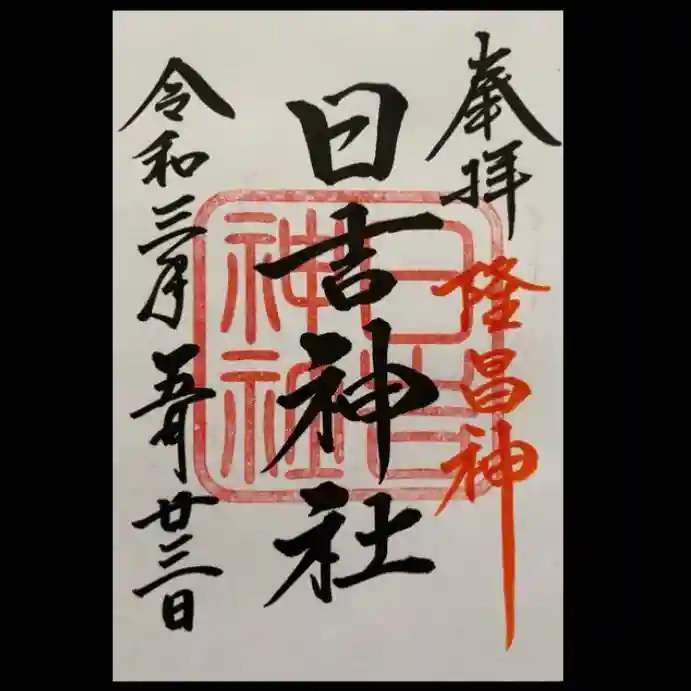 奉拝
隆昌神
日吉神社
日吉
神社
令和三年五月廿三日